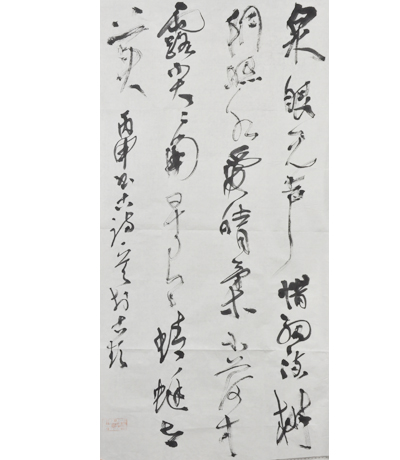 泉眼无声惜細流樹
陰照水愛晴柔小荷才
露尖尖角早有蜻蜓立
上头
丙申书古诗一首